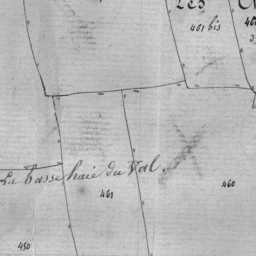 Les
461 bis
La basse haie du Val.
461
460
450